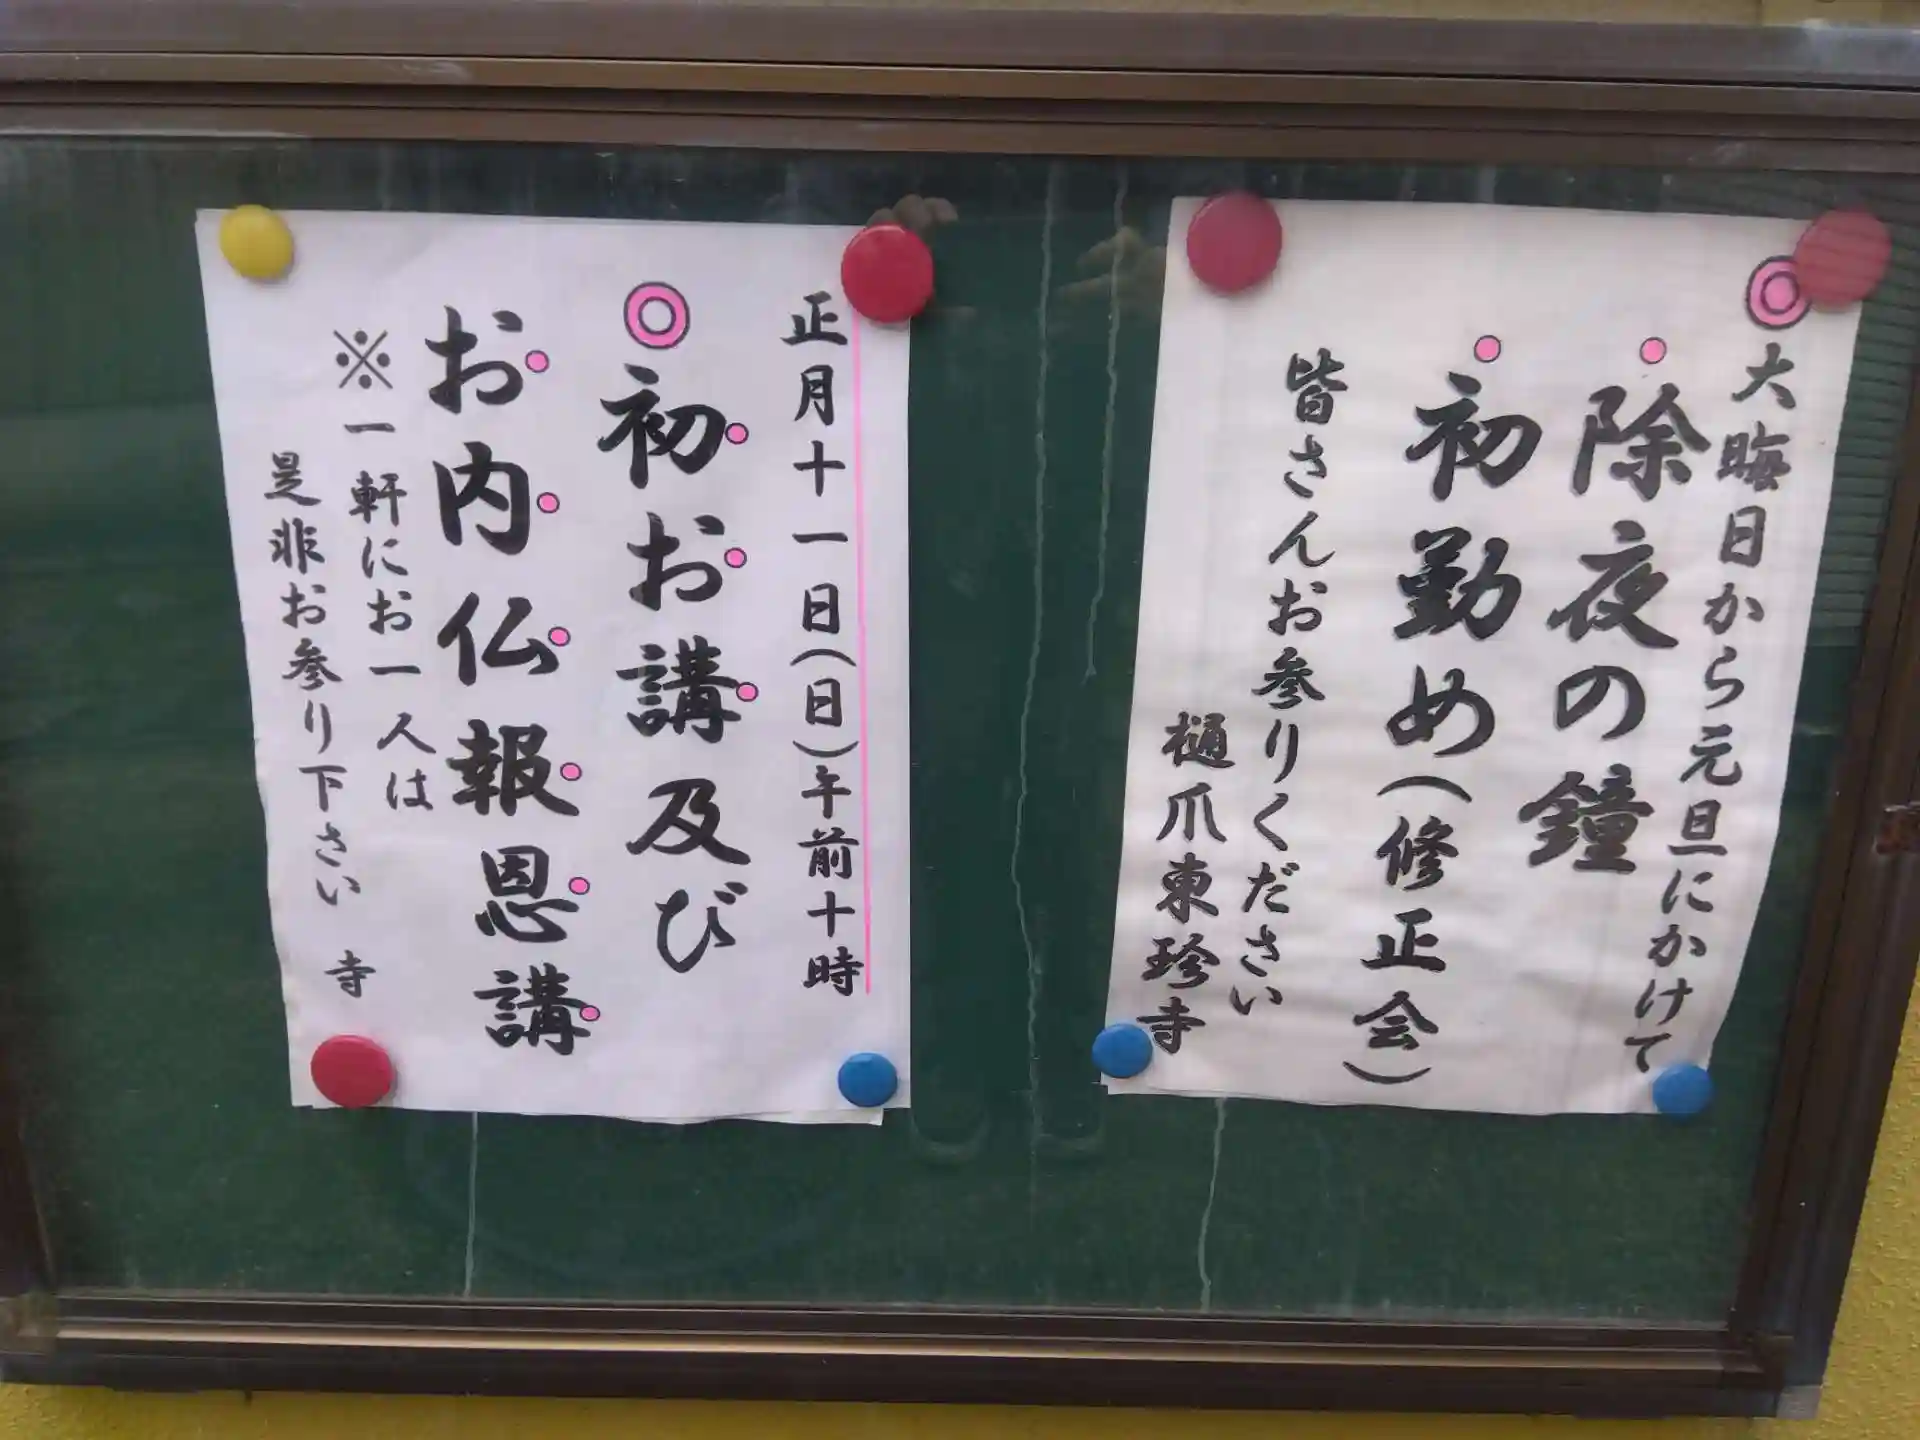 ◎大晦日から元旦にかけて
・除夜の鐘
・初勤め(修正会)
皆さんお参りください
樋爪東珍寺
正月十一日(日)午前十時
◎初お講及び
お内仏報恩講
※一軒にお一人は
是非お参り下さい 寺